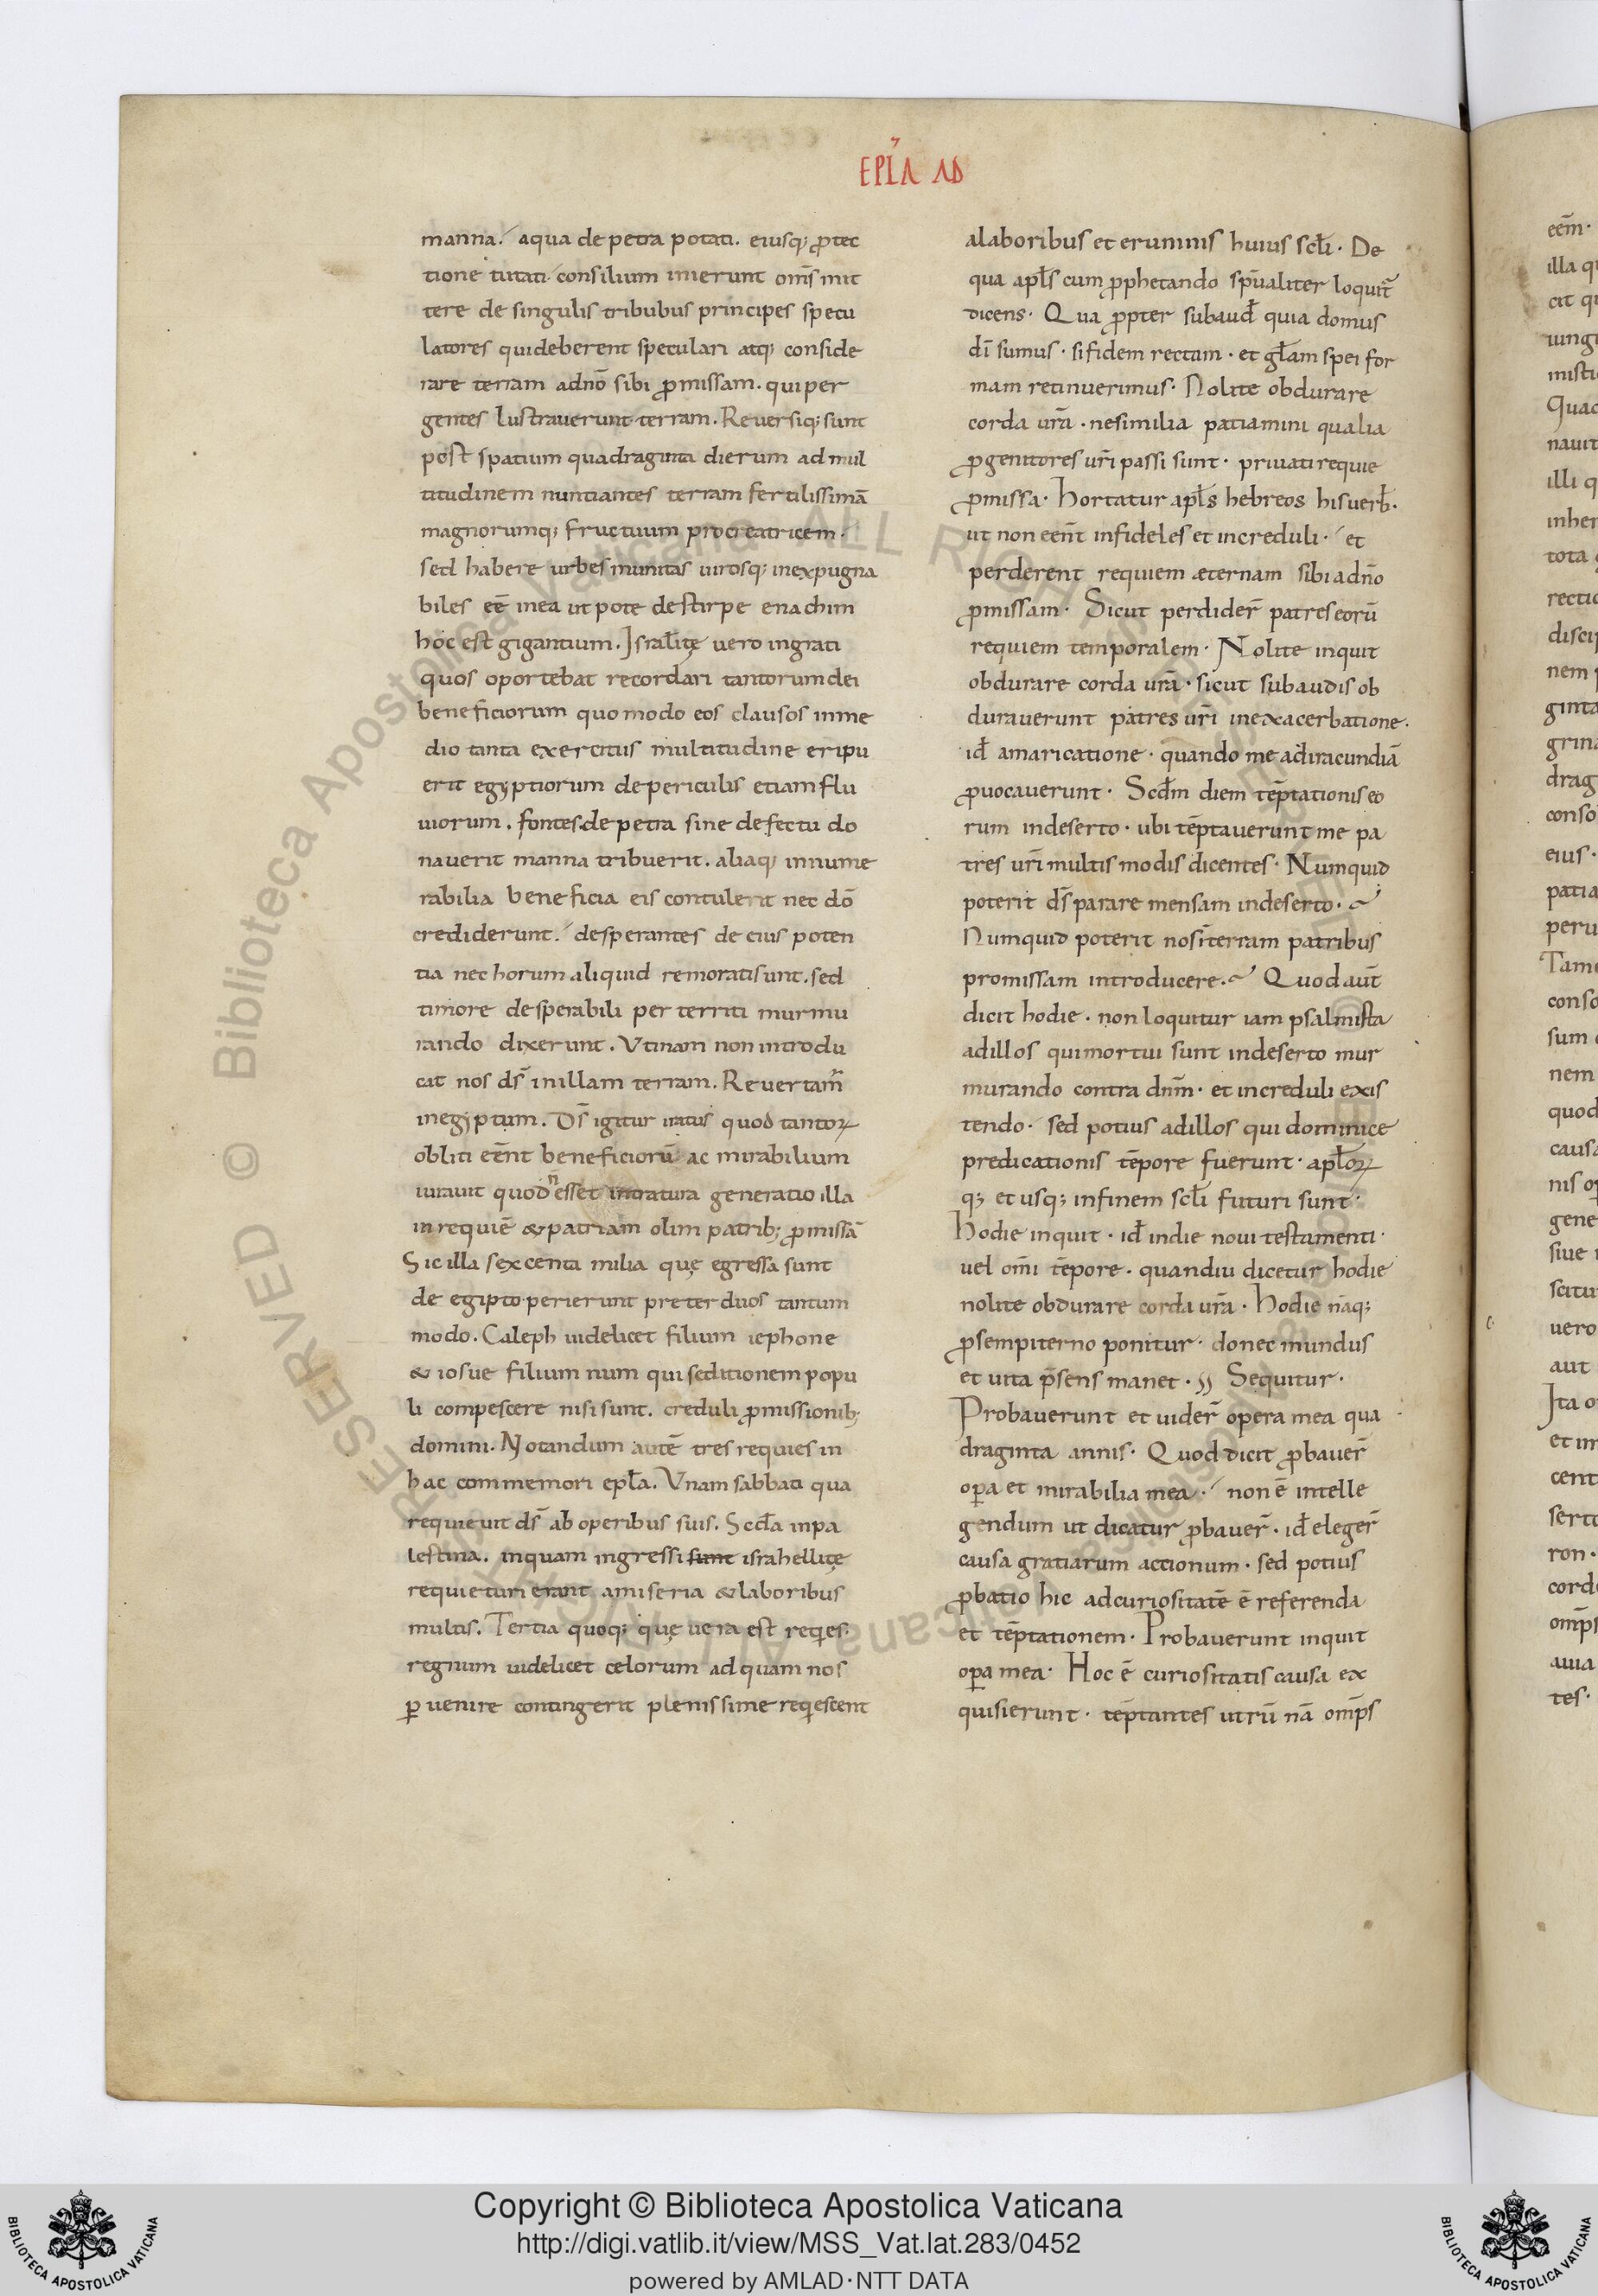 EPL̄A AD
manna. aqua de petra potati. eiusq; ꝓtec
tione tutati. consilium inierunt om̄s mit
tere de singulis tribubus principes specu
latores quideberent speculari atq; conside
rare terram adnō sibi ꝓmissam. qui per
gentes lustraverunt terram. Reversiq; sunt
post spatium quadraginta dierum ad mul
titudinem nuntiantes terram fertilissimā
magnorumq; fructuum procreatricem.
sed habere urbes munitas virosq; inexpugna
biles eē inea ut pote de stirpe enachim
hoc est gigantium. Isral̄itę vero ingrati
quos oportebat recordari tantorum dei
beneficiorum quo modo eos clausos inme
dio tanta exercitus multitudine eripu
erit egyptiorum de periculis etiam flu
viorum. fontes de petra sine defectu do
naverit manna tribuerit. aliaq; innume
rabilia beneficia eis contulerit nec dō
crediderunt. desperantes de eius poten
tia nec horum aliquid remorati sunt. sed
timore desperabili per territi murmu
rando dixerunt. Utinam non introdu
cat nos ds̄ inillam terram. Revertam̄
inegyptum. Ds̄ igitur iratus quod tantoꝝ
obliti eēnt beneficiorū ac mirabilium
iuravit quod n̄ esset intratura generatio illa
in requiē & patriam olim patrib; ꝓmissā
Sic illa sexcenta milia quę egressa sunt
de egipto perierunt preter duos tantum
modo. Caleph videlicet filium iephone
& iosue filium num qui seditionem popu
li compescere nisi sunt. creduli ꝓmissionib;
domini. Notandum autē tres requies in
hac commemori epl̄a. Unam sabbati qua
requievit ds̄ ab operibus suis. Scd̄a inpa
lestina. inquam ingressi sunt israhellitę
requieturi erant amiseria & laboribus
multis. Tertia quoq; quę vera est reqies.
regnum videlicet celorum ad quam nos
ꝑ venire contingerit plenissime reqiescent
alaboribus et erumnis huius scl̄i. De
qua apl̄s cum ꝓphetando spūaliter loquit̄
dicens. Qua ꝓpter subaud̄ quia domus
dī sumus. si fidem rectam. et gl̄am spei for
mam retinuerimus. Nolite obdurare
corda ur̄a. ne similia patiamini qualia
ꝓgenitores ur̄i passi sunt. privati requie
ꝓmissa. Hortatur apl̄s hebreos his verb̄.
ut non eēnt infideles et increduli. et
perderent requiem æternam sibi adn̄o
ꝓmissam. Sicut perdider̄ patres eorū
requiem temporalem. Nolite inquit
obdurare corda ur̄a. sicut subaudis ob
duraverunt patres ur̄i inexacerbatione.
id̄ amaricatione. quando me adiracundiā
ꝓvocaverunt. Scd̄m diem tēptationis eo
rum indeserto. ubi tēptaverunt me pa
tres ur̄i multis modis dicentes. Numquid
poterit ds̄ parare mensam indeserto.
Numquid poterit nos īterram patribus
promissam introducere. Quod aut̄
dicit hodie. non loquitur iam psalmista
adillos qui mortui sunt indeserto mur
murando contra dn̄m. et increduli exis
tendo. sed potius adillos qui dominice
predicationis tēpore fuerunt. apl̄oꝝ
q; et usq; infinem scl̄i futuri sunt.
Hodie inquit. id̄ indie novi testamenti.
vel om̄i tēpore. quandiu dicetur hodie
nolite obdurare corda ur̄a. Hodie nāq;
ꝓsempiterno ponitur. donec mundus
et vita p̄sens manet. Sequitur.
Probaverunt et vider̄ opera mea qua
draginta annis. Quod dicit ꝓbaver̄
oꝑa et mirabilia mea. non ē intelle
gendum ut dicatur ꝓbaver̄. id̄ eleger̄
causa gratiarum actionum. sed potius
ꝓbatio hic adcuriositatē ē referenda
et tēptationem. Probaverunt inquit
oꝑa mea. Hoc ē curiositatis causa ex
quisierunt. tēptantes utrū nā omp̄s
Copyright © Biblioteca Apostolica Vaticana
http://digi.vatlib.it/view/MSS_Vat.lat.283/0452
powered by AMLAD·NTT DATA
BIBLIOTECA APOSTOLICA VATICANA
BIBLIOTECA APOSTOLICA VATICANA